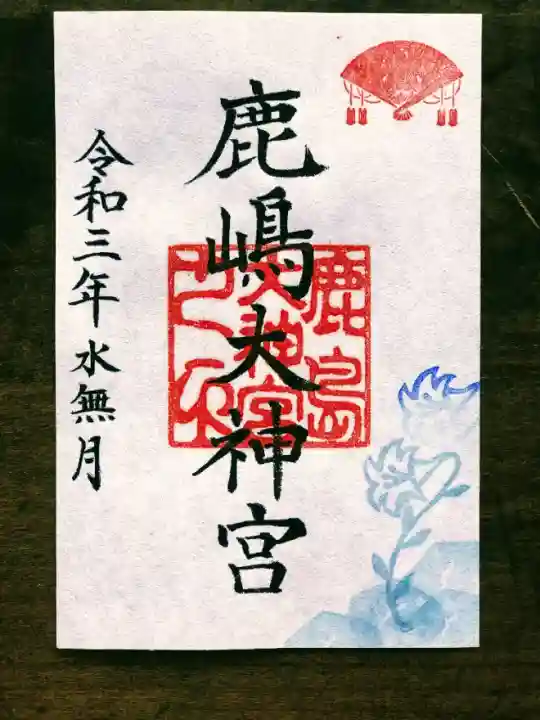 鹿嶋大神宮
令和三年水無月
鹿島
大神宮
之印